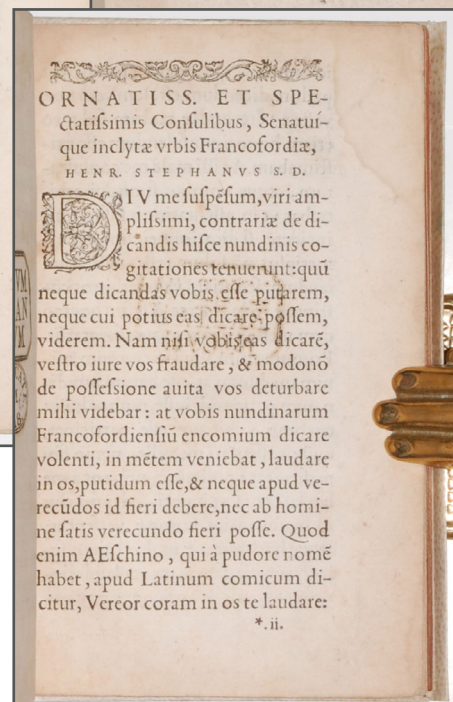 ORNATISS. ET SPE-
ctatiſſimis Conſulibus, Senatuí-
que inclytæ vrbis Francofordiæ,
HENR. STEPHANVS S. D.
DIV me ſuſpẽſum, viri am-
pliſsimi, contrariæ de di-
candis hiſce nundinis co-
gitationes tenuerunt: quũ
neque dicandas vobis eſſe putarem,
neque cui potius eas dicare poſſem,
viderem. Nam niſi vobis eas dicarẽ,
veſtro iure vos fraudare, & modonõ
de poſſeſsione auita vos deturbare
mihi videbar: at vobis nundinarum
Francofordienſiũ encomium dicare
volenti, in mẽtem veniebat, laudare
in os, putidum eſſe, & neque apud ve-
recũdos id fieri debere, nec ab homi-
ne ſatis verecundo fieri poſſe. Quod
enim AEſchino, qui à pudore nomẽ
habet, apud Latinum comicum di-
citur, Vereor coram in os te laudare:
*.ii.